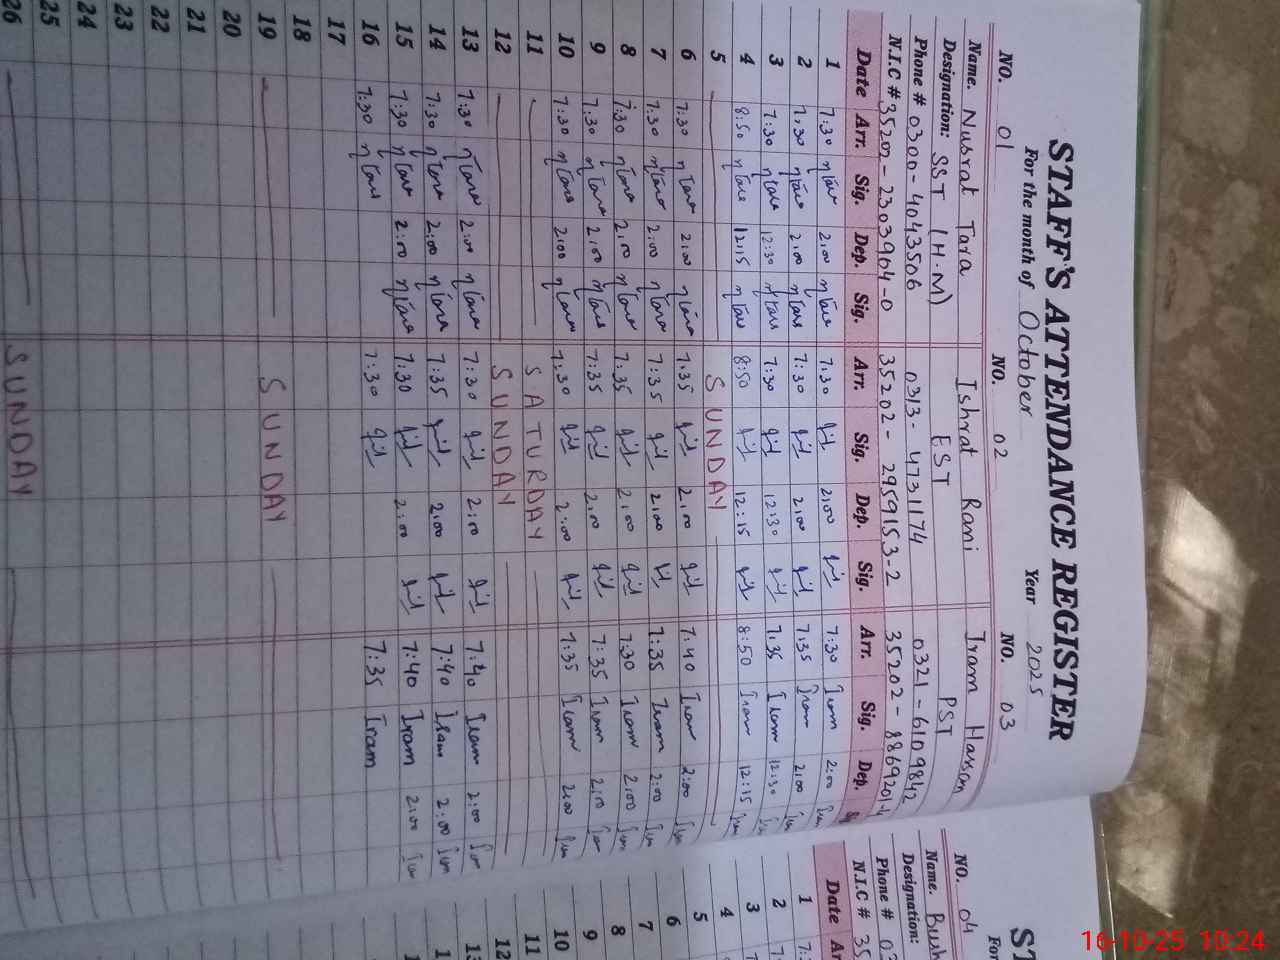 STAFF'S ATTENDANCE REGISTER
For the month of October Year 2025
NO. 01 NO. 02 NO. 03
Name. Nusrat Tara Ishrat Rani Iram Hassan
Designation: SST (H.M) EST PST
Phone # 0300-4043506 0313-4731174 0321-6109842
N.I.C # 35202-2303904-0 35202-2959153-2 35202-8869201-4
Date Arr. Sig. Dep. Sig. Arr. Sig. Dep. Sig. Arr. Sig. Dep.
1 7:30 ηTara 2:00 ηTara 7:30 2:00 7:30 Iram 2:00
2 7:30 ηTara 2:00 ηTara 7:30 2:00 7:35 Iram 2:00
3 7:30 ηTara 12:30 ηTara 7:30 12:30 7:35 Iram 12:30
4 8:50 ηTara 12:15 ηTara 8:50 12:15 8:50 Iram 12:15
5 SUNDAY
6 7:30 ηTara 2:00 ηTara 7:35 2:00 7:40 Iram 2:00
7 7:30 ηTara 2:00 ηTara 7:35 2:00 7:35 Iram 2:00
8 7:30 ηTara 2:00 ηTara 7:35 2:00 7:30 Iram 2:00
9 7:30 ηTara 2:00 ηTara 7:35 2:00 7:35 Iram 2:00
10 7:30 ηTara 2:00 ηTara 7:30 2:00 7:35 Iram 2:00
11 SATURDAY
12 SUNDAY
13 7:30 ηTara 2:00 ηTara 7:30 2:00 7:40 Iram 2:00
14 7:30 ηTara 2:00 ηTara 7:35 2:00 7:40 Iram 2:00
15 7:30 ηTara 2:00 ηTara 7:30 2:00 7:40 Iram 2:00
16 7:30 ηTara 7:30 7:35 Iram
17
18
19 SUNDAY
20
21
22
23
24
25
26 SUNDAY
ST
For
NO. 04
Name. Bush
Designation:
Phone # 03
N.I.C # 35
Date Ar
1 7:
2 7:
3
4
5
6
7
8
9
10
11
12
16-10-25 10:24